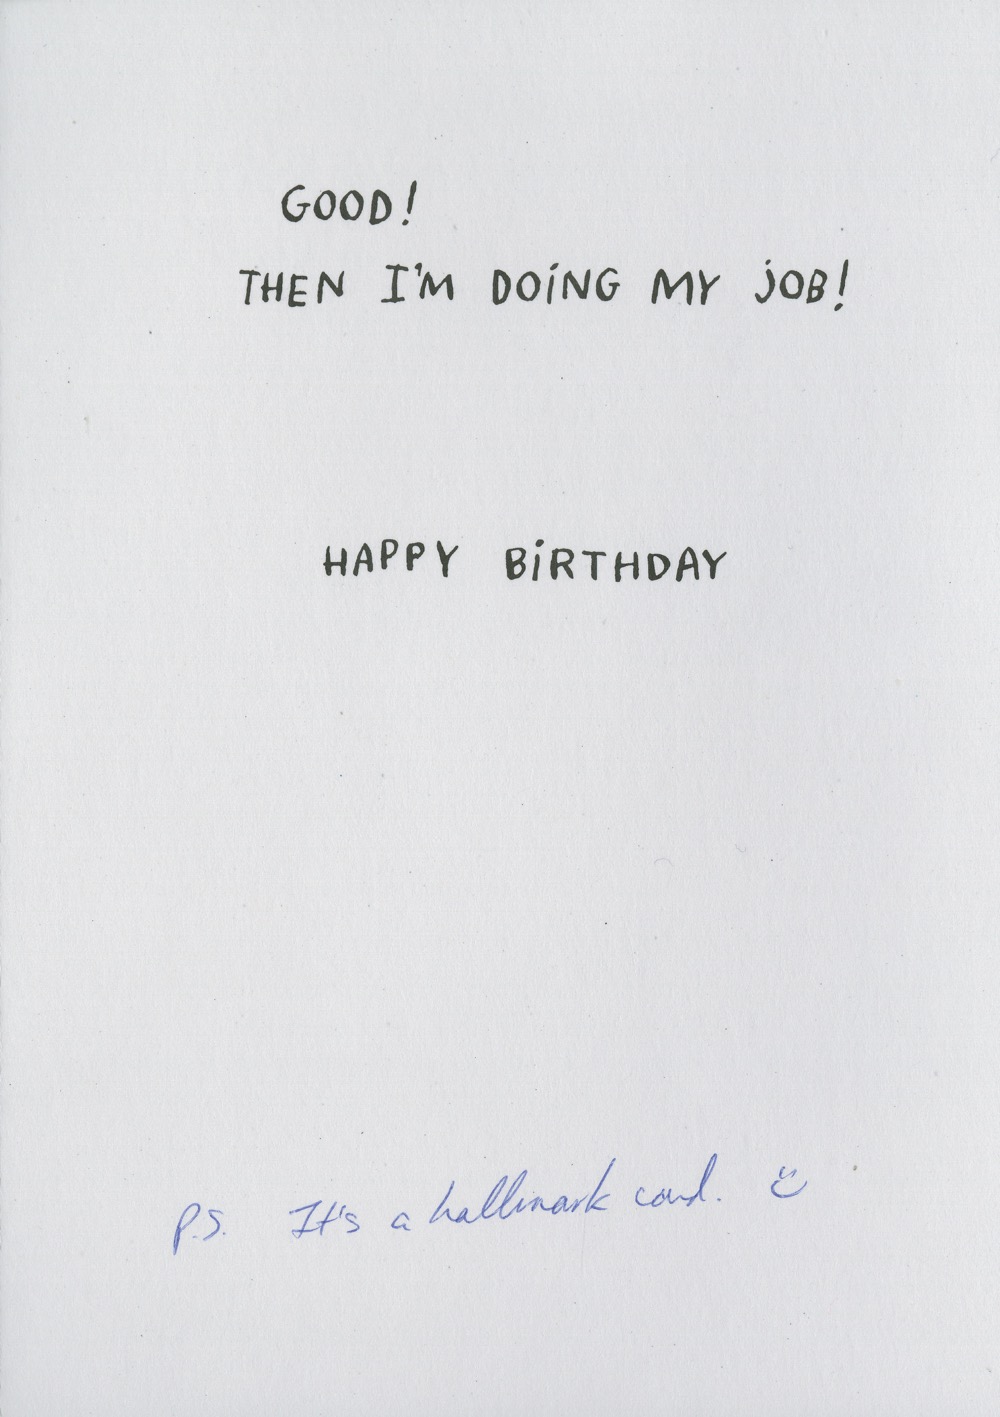 GOOD!
THEN I'M DOING MY JOB!
HAPPY BIRTHDAY
P.S. It's a hallmark card. ☺